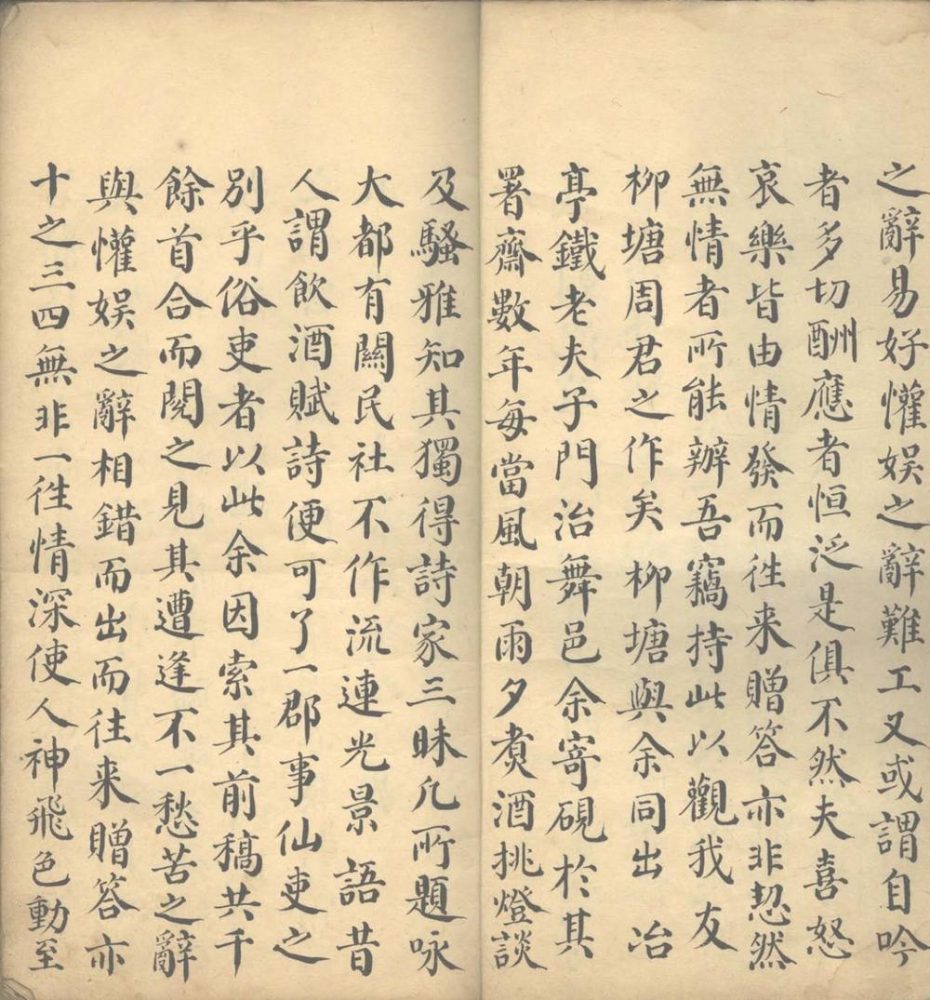 之辭易好懽娯之辭難工又或謂自吟
者多切酬應者恒泛是俱不然夫喜怒
哀樂皆由情發而徃来贈答亦非恝然
無情者所能辦吾竊持此以觀我友
柳塘周君之作矣柳塘與余同出冶
亭鐵老夫子門治舞邑余寄硯於其
署齋數年每當風朝雨夕煑酒挑燈談
及騷雅知其獨得詩家三昧凡所題咏
大都有關民社不作流連光景語昔
人謂飲酒賦詩便可了一郡事仙吏之
別乎俗吏者以此余因索其前稿共千
餘首合而閱之見其遭逢不一愁苦之辭
與懽娯之辭相錯而出而往来贈答亦
十之三四無非一徃情深使人神飛色動至